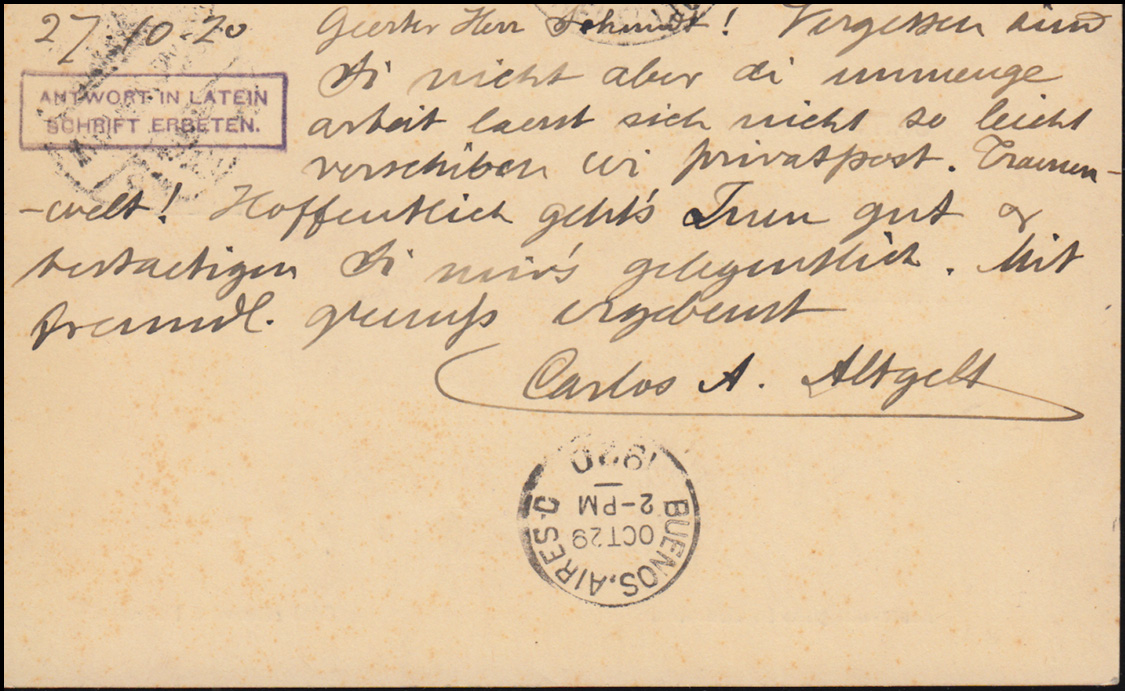 27.10.20 Geerter Herr Schmidt! Vergessen sind
ANTWORT IN LATEIN
SCHRIFT ERBETEN.
Si nicht aber di unmenge
arbeit laesst sich nicht so leicht
verschiben wi privatpost. Traenen-
-welt! Hoffentlich geht's Inen gut &
bestaetigen Si mir's gelegentlich. Mit
freundl. gruuss ergebenst
Carlos A. Altgelt
BUENOS.AIRES C
OCT 29
2-PM
1920